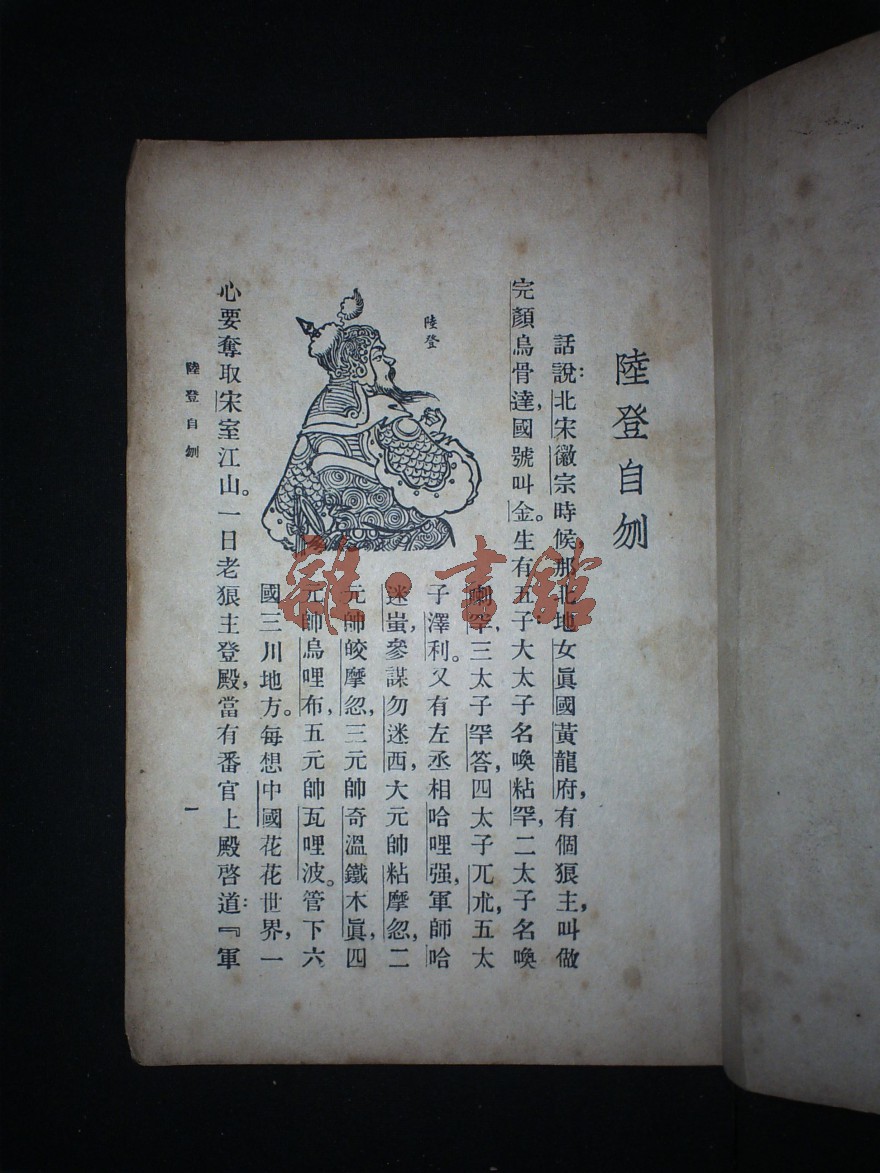 陸登自刎
話說：北宋徽宗時候，那北地女眞國黃龍府，有個狼主，叫做
完顏烏骨達，國號叫金。生有五子：大太子名喚粘罕，二太子名喚
喇罕，三太子罕答，四太子兀朮，五太
子澤利。又有左丞相哈哩强，軍師哈
迷蚩，參謀勿迷西，大元帥粘摩忽，二
元帥皎摩忽，三元帥奇溫鐵木眞，四
元帥烏哩布，五元帥瓦哩波。管下六
國三川地方。每想中國花花世界，一
心要奪取宋室江山。一日老狼主登殿，當有番官上殿啓道：『軍
陸登
陸登自刎
一
雜·書館